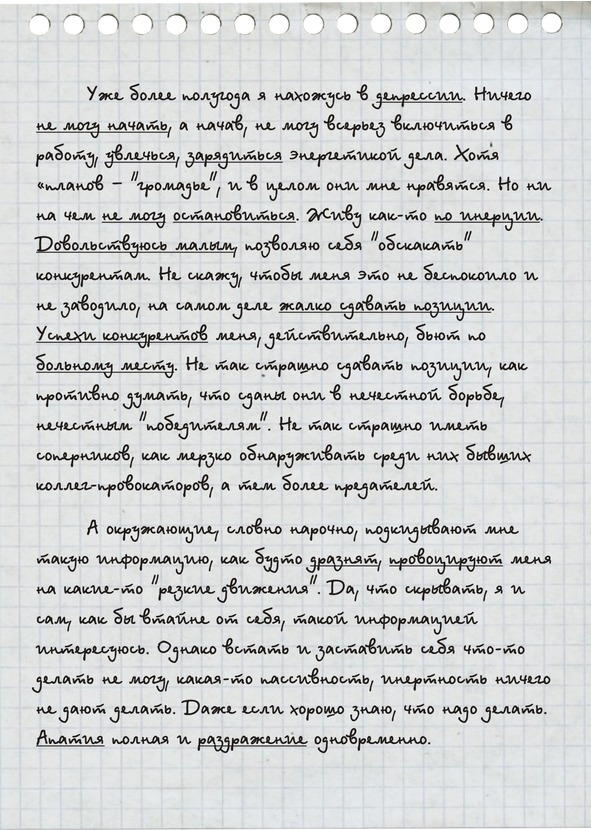 Уже более полугода я нахожусь в депрессии. Ничего
не могу начать, а начав, не могу всерьез включиться в
работу, увлечься, зарядиться энергетикой дела. Хотя
«планов – "громадье", и в целом они мне нравятся. Но ни
на чем не могу остановиться. Живу как-то по инерции.
Довольствуюсь малым, позволяю себя "обскакать"
конкурентам. Не скажу, чтобы меня это не беспокоило и
не заводило, на самом деле жалко сдавать позиции.
Успехи конкурентов меня, действительно, бьют по
больному месту. Не так страшно сдавать позиции, как
противно думать, что сданы они в нечестной борьбе,
нечестным "победителям". Не так страшно иметь
соперников, как мерзко обнаруживать среди них бывших
коллег-провокаторов, а тем более предателей.
А окружающие, словно нарочно, подкидывают мне
такую информацию, как будто дразнят, провоцируют меня
на какие-то "резкие движения". Да, что скрывать, я и
сам, как бы втайне от себя, такой информацией
интересуюсь. Однако встать и заставить себя что-то
делать не могу, какая-то пассивность, инертность ничего
не дают делать. Даже если хорошо знаю, что надо делать.
Апатия полная и раздражение одновременно.